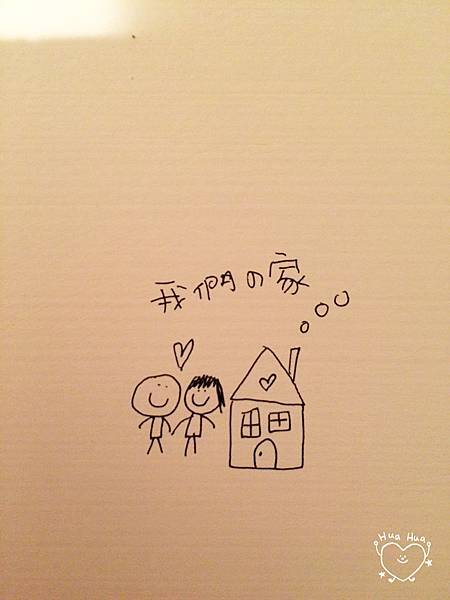 我們の家
Hua Hua